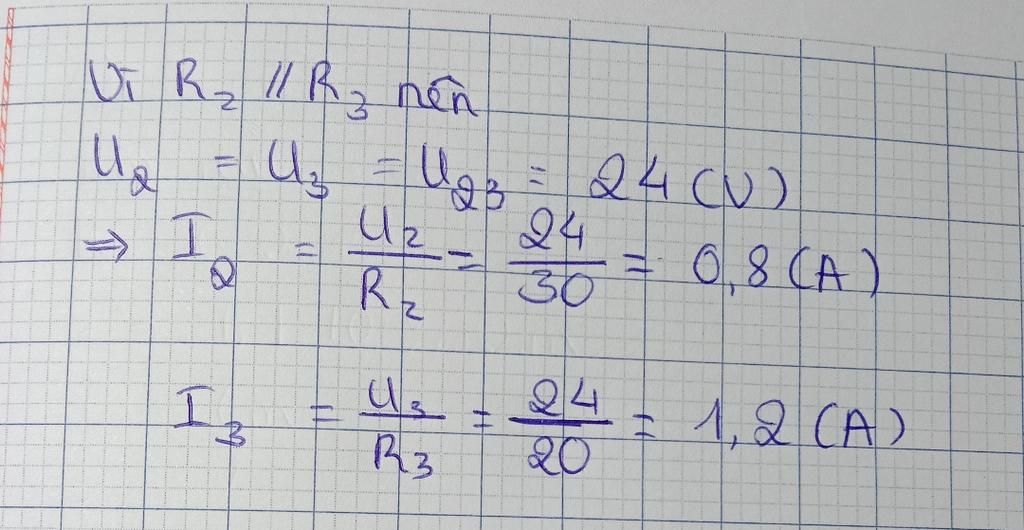 Vì R₂ // R₃ nên
U₂ = U₃ = U₂₃ = 24 (V)
⇒ I₂ = U₂/R₂ = 24/30 = 0,8 (A)
I₃ = U₃/R₃ = 24/20 = 1,2 (A)